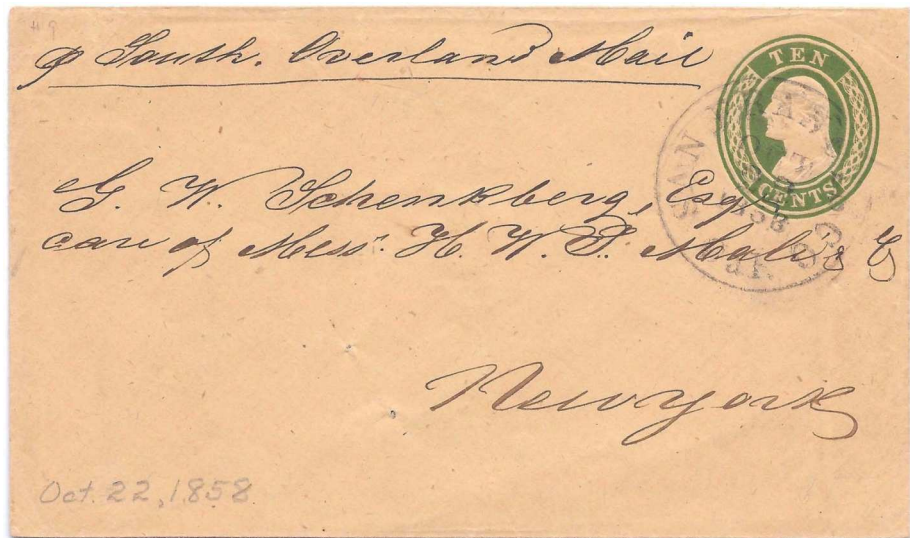 # 9
p South. Overland Mail
TEN
CENTS
SAN FRANCISCO
1858
G. W. Schenkberg, Esq
care of Mess: H. W. T. Mali & C
New york
Oct. 22, 1858